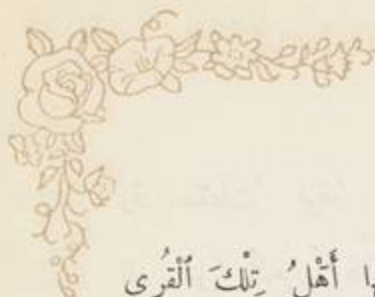 أَهْلُ تِلْكَ ٱلْقُرى